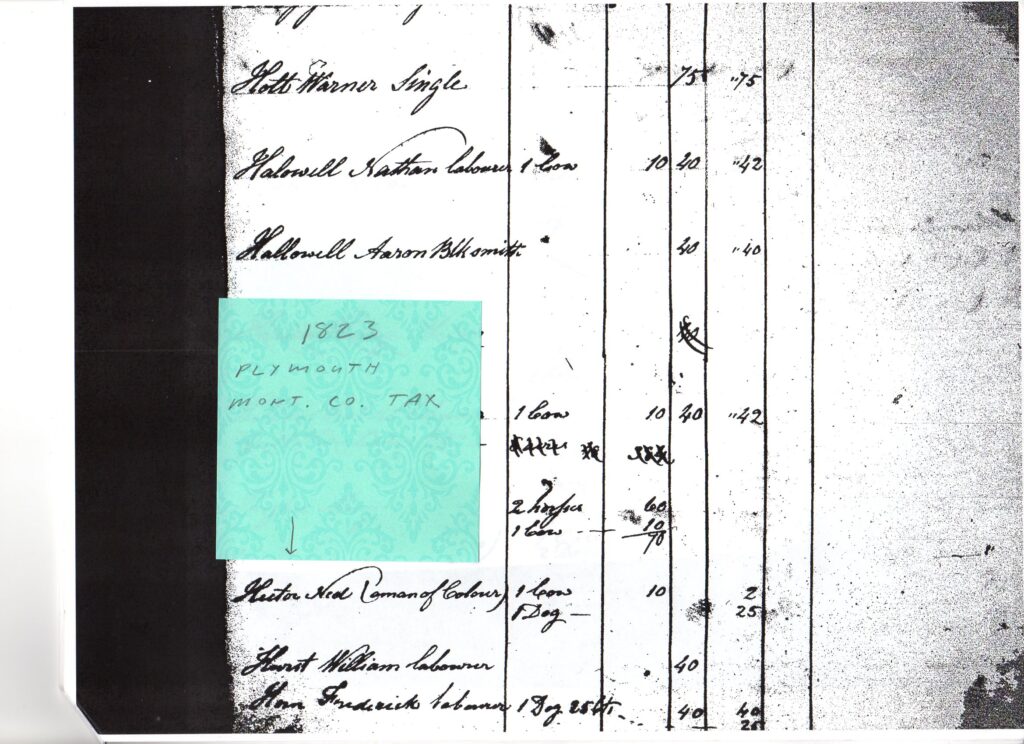 Hott Warner Single 75 "75
Halowell Nathan labourer 1 Cow 10 40 "42
Hallowell Aaron Blksmith 40 "40
1823
PLYMOUTH
MONT. CO. TAX
1 Cow 10 40 "42
2 horses 60
1 Cow 10
70
Hector Ned (a man of Colour) 1 Cow 10 2
1 Dog — 25
Hurst William labourer 40
Horn Frederick labourer 1 Dog 25 cts 40 40
25